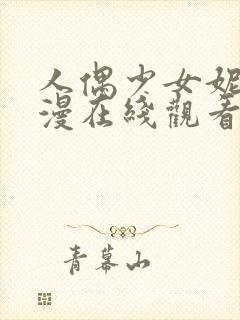 人偶少女妮
漫在綫觀看
青幕山